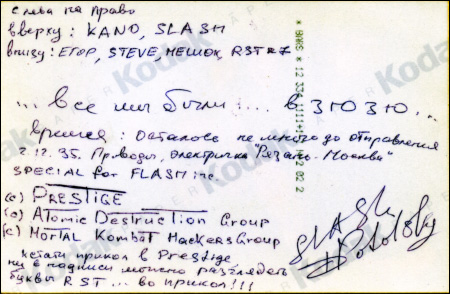 слева на право
вверху: KANO, SLASH
внизу: ЕГОР, STEVE, МЕШОК, RST #7
... все мы были ... в зюзю ...
время: осталось не много до отправления
2.12.95. Проводы, электричка "Рязань-Москва"
SPECIAL for FLASH inc.
(c) PRESTIGE
(c) Atomic Destruction Group
(c) MORTAL KOMBAT HACKERS GROUP
кстати прикол в Prestige
в подписи можно разглядеть
буквы RST ... во прикол!!!
SLASH
Kodak